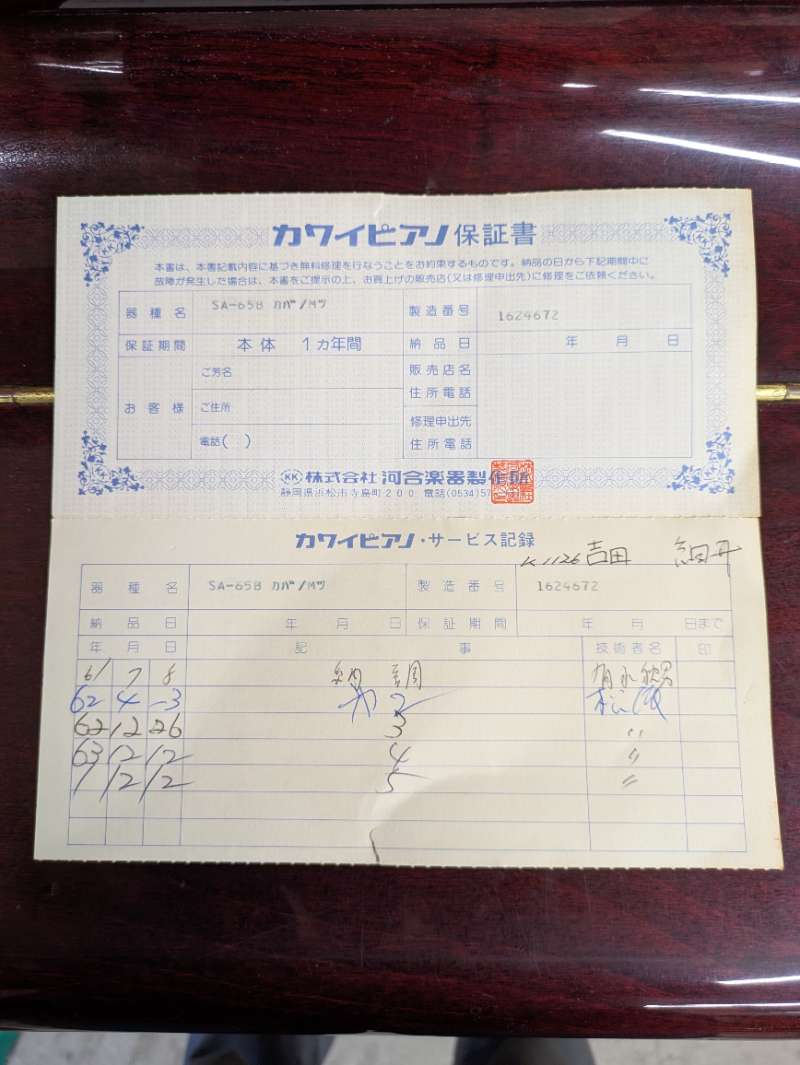 カワイピアノ 保証書
本書は、本書記載内容に基づき無料修理を行なうことをお約束するものです。納品の日から下記期間中に
故障が発生した場合は、本書をご提示の上、お買上げの販売店(又は修理申出先)に修理をご依頼ください。
器種名 SA-65B カバ/Mツ 製造番号 1624672
保証期間 本体 1ヵ年間 納品日 年 月 日
お客様 ご芳名 販売店名
住所電話
ご住所
修理申出先
電話( ) 住所電話
KK 株式会社 河合楽器製作所
静岡県浜松市寺島町200 電話(0534)57
カワイピアノ・サービス記録
K1126 吉田 細井
器種名 SA-65B カバ/Mツ 製造番号 1624672
納品日 年 月 日 保証期間 年 月 日まで
年 月 日 記事 技術者名 印
61 7 8 納調
62 4 -3 2
62 12 26 3 〃
63 12 12 4 〃
1 12 12 5 〃